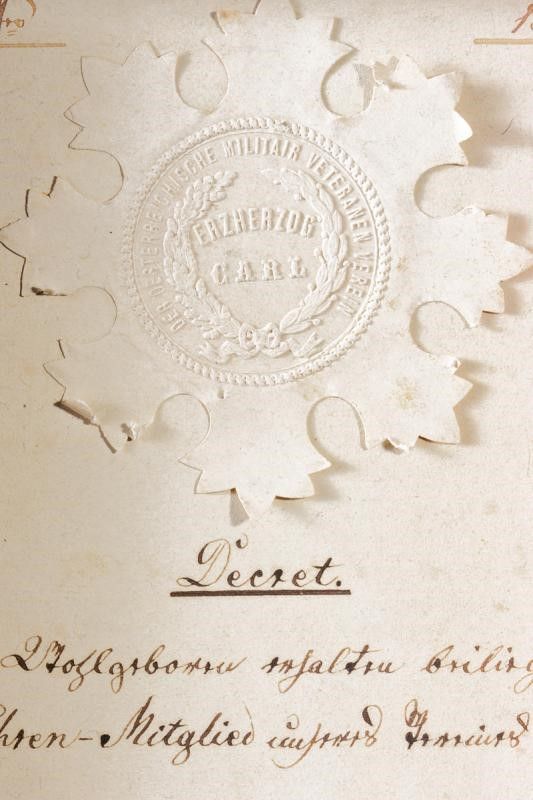 DER OESTERREICHISCHE MILITAIR VETERANEN VEREIN
ERZHERZOG
CARL
Decret.
Wohlgeboren erhalten beilieg
hren-Mitglied unseres Vereines